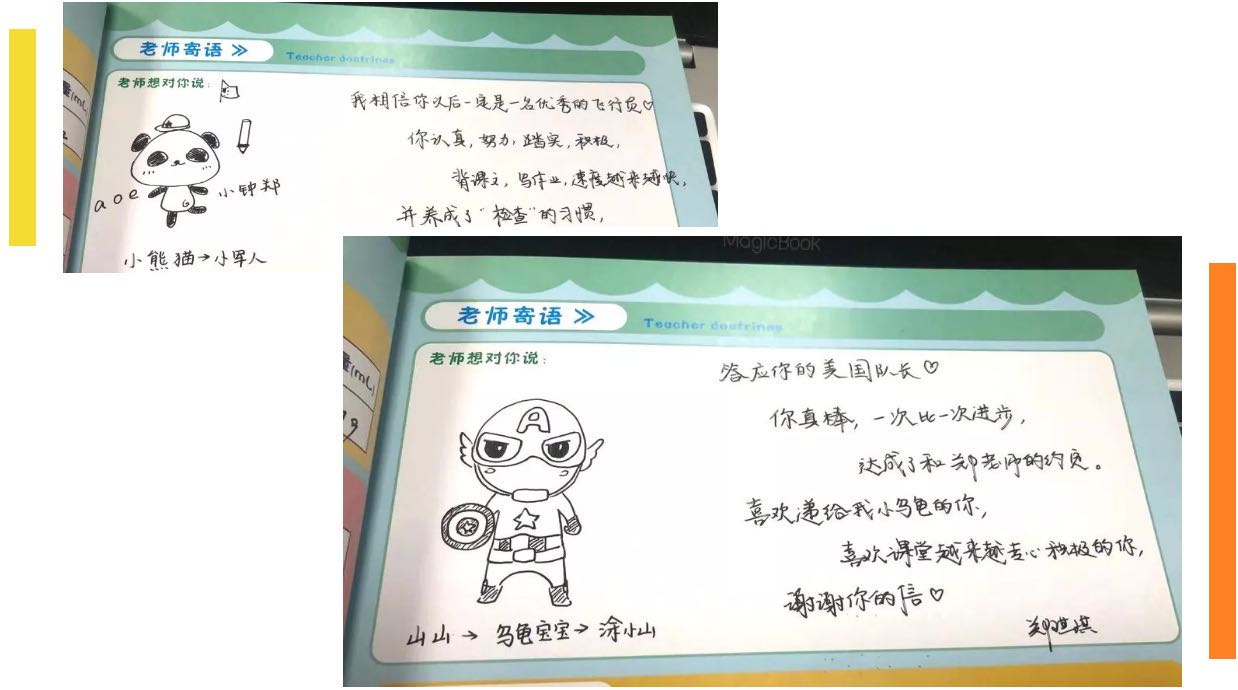 老师寄语 >>
Teacher doctrines
老师想对你说:
量(mL)
我相信你以后一定是一名优秀的飞行员♡
你认真,努力,踏实,积极,
背课文,写作业,速度越来越快,
并养成了"检查"的习惯,
a o e
小钟郑
小熊猫→小军人
MagicBook
老师寄语 >>
Teacher doctrines
老师想对你说:
量(mL)
A
答应你的美国队长♡
你真棒,一次比一次进步,
达成了和郑老师的约定。
喜欢递给我小乌龟的你,
喜欢课堂越来越专心积极的你,
谢谢你的信♡
山山→乌龟宝宝→涂小山